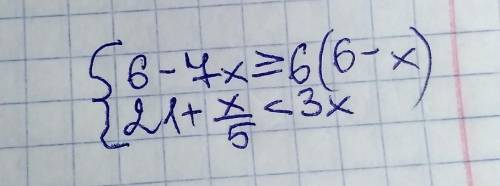 { 6 - 7x ≥ 6(6 - x)
21 + x/5 < 3x